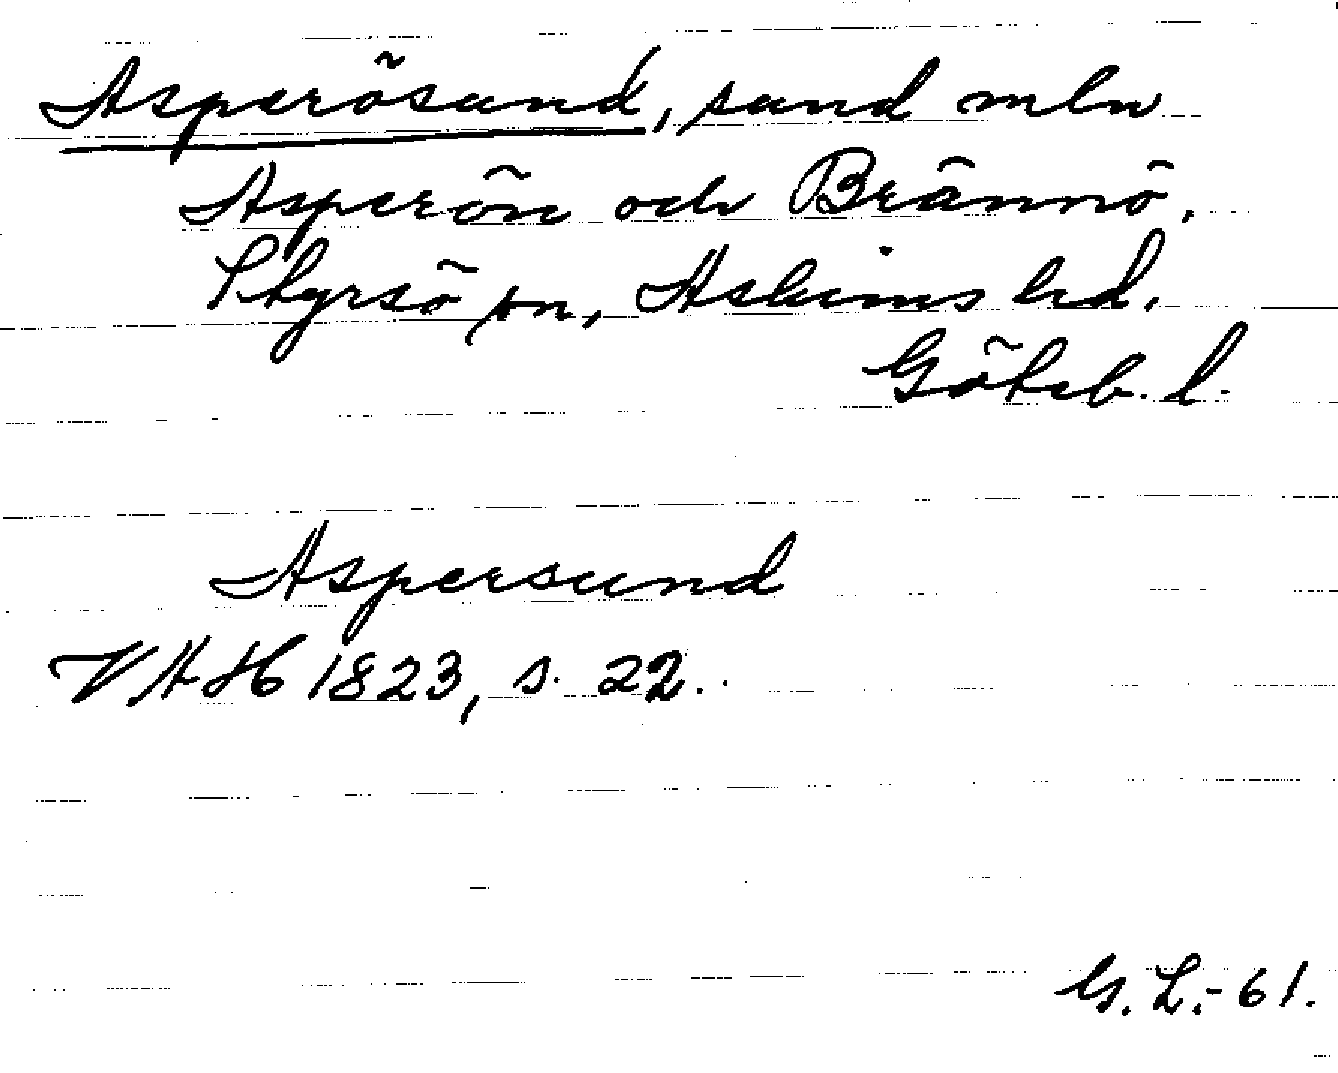 Asperösund, sund mln
Asperön och Brännö,
Styrsö sn, Askims hd,
Göteb. l.
Aspersund
VAH 1823, s. 22.
G. L. - 61.